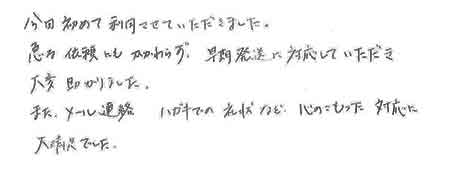 今回初めて利用させていただきました。
急な依頼にもかかわらず、早期発送に対応していただき
大変助かりました。
また、メール連絡 ハガキでのお礼状など、心のこもった対応に
大満足でした。